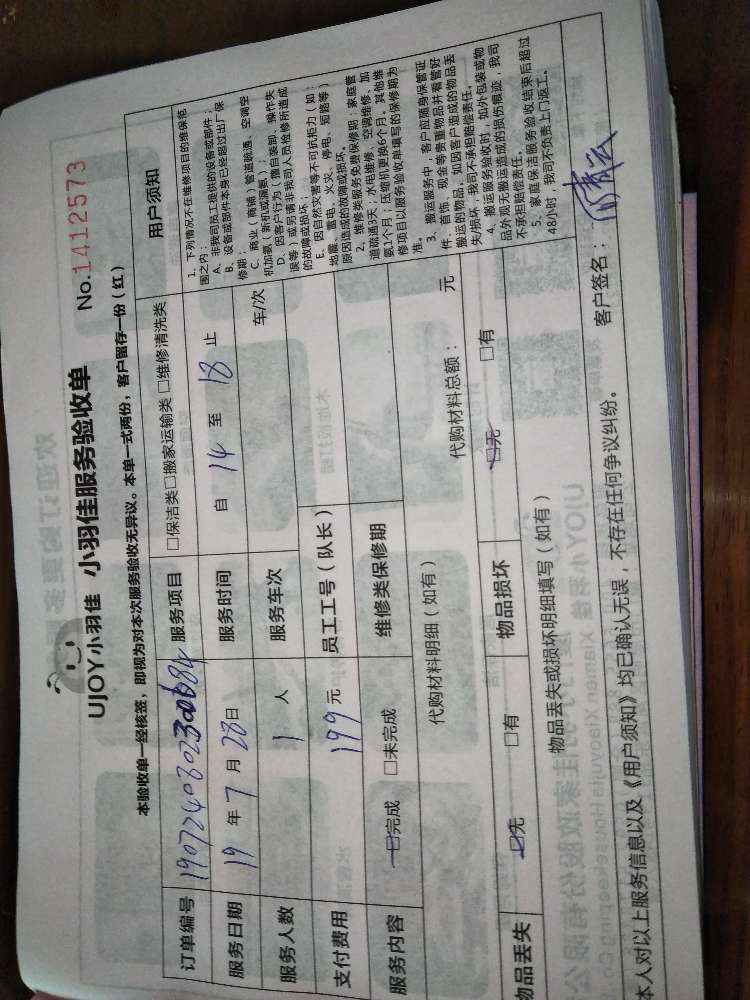 UJOY小羽佳 小羽佳服务验收单 No.1412573
本验收单一经核签，即视为对本次服务验收无异议。本单一式两份，客户留存一份（红）
订单编号 服务项目 □保洁类□搬家运输类 □维修清洗类
服务日期 19 年 7 月 28 日 服务时间 自 14 至 18 止
服务人数 1 人 服务车次 车/次
支付费用 199 元 员工工号（队长）
服务内容 □完成 □未完成 维修类保修期
代购材料明细（如有） 代购材料总额： 元
物品丢失 □无 □有 物品损坏 □无 □有
物品丢失或损坏明细填写（如有）
用户须知
1、下列情况不在维修项目的维保范
围之内：
A、非我司员工提供的设备或部件；
B、设备或部件本身已经超过出厂保
修期；
C、商业（商铺）管道疏通、空调空
机加氨（新机或漏氨）；
D、因客户行为（擅自装卸、操作失
误等）或另请非我司人员检修所造成
的故障或损坏；
E、因自然灾害等不可抗拒力（如：
地震、雷电、火灾、停电、短路等）
原因造成的故障或损坏。
2、维修类服务免费保修期：家庭管
道疏通3天；水电维修、空调维修、加
氨1个月；压缩机更换6个月，其他维
修项目以服务验收单填写的保修期为
准。
3、搬运服务中，客户应随身保管证
件、首饰、现金等贵重物品并看管好
搬运的物品，如因客户造成的物品丢
失/损坏，我司不承担赔偿责任。
4、搬运服务验收时，如外包装或物
品外观无搬运造成的损伤痕迹，我司
不承担赔偿责任。
5、家庭保洁服务验收结束后超过
48小时，我司不负责上门返工。
本人对以上服务信息以及《用户须知》均已确认无误，不存在任何争议纠纷。 客户签名：